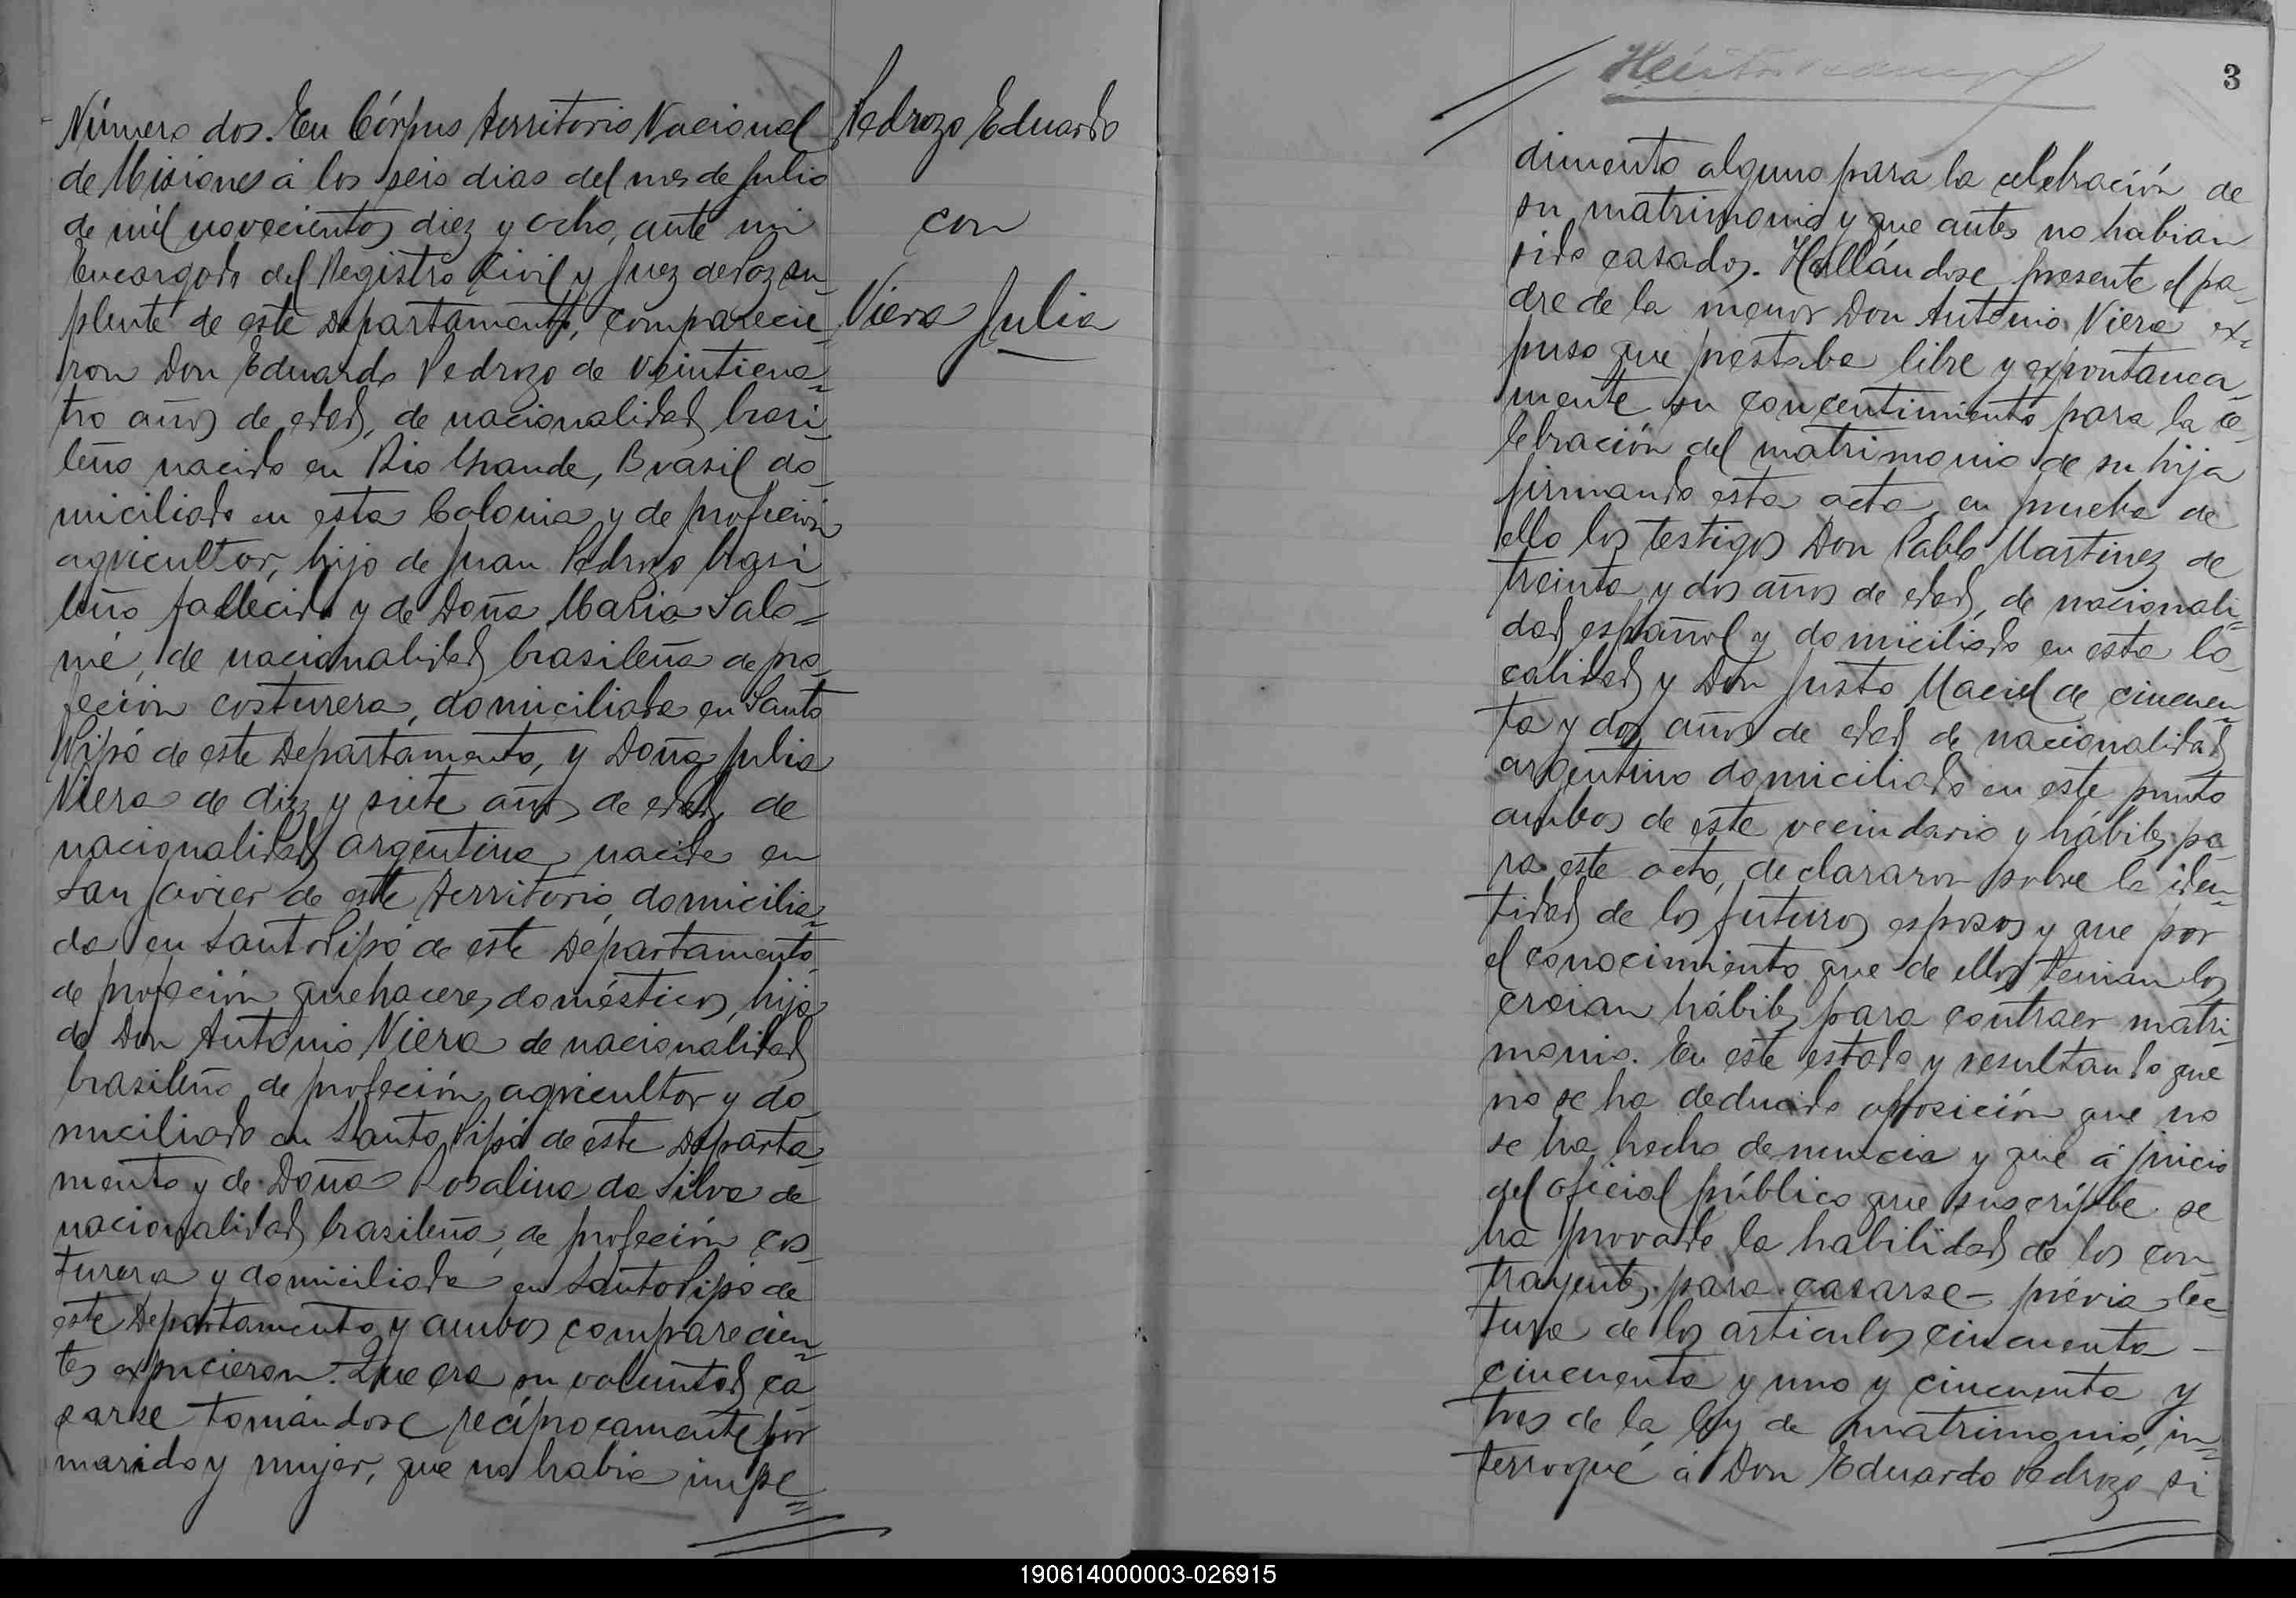 Número dos. En Córpus territorio Nacional
de Misiones á los seis dias del mes de Julio
de mil novecientos diez y ocho, ante mi
Encargado del Registro Civil y Juez de Paz su-
plente de este Departamento, comparecie-
ron Don Eduardo Pedrozo de Veinticua=
tro años de edad, de nacionalidad brasi-
leño nacido en Rio Grande, Brasil do-
miciliado en esta Colonia y de profeción
agricultor, hijo de Juan Pedrozo brasi-
leño fallecido y de Doña Maria Salo=
mé, de nacionalidad brasileña de pro-
feción costurera, domiciliada en Santo
Pipó de este Departamento, y Doña Julia
Viera de diez y siete años de edad, de
nacionalidad argentina nacida en
San Javier de este territorio, domicilia=
da en Santo Pipó de este Departamento
de profeción quehaceres domésticos, hija
de Don Antonio Viera de nacionalidad
brasileño de profeción agricultor y do-
miciliado en Santo Pipó de este Departa-
mento y de Doña Rosalina da Silva de
nacionalidad brasileña, de profeción cos-
turera y domiciliada en Santo Pipó de
este Departamento y ambos comparecien=
tes expucieron: Que era su voluntad ca-
sarse tomándose recíprocamente por
marido y mujer, que no habia impe=
Pedrozo Eduardo
con
Viera Julia
3
dimento alguno para la celebración de
su matrimonio y que antes no habian
sido casados. Hallándose presente el pa-
dre de la menor Don Antonio Viera ex-
puso que prestaba libre y expontanea-
mente su concentimiento para la ce-
lebración del matrimonio de su hija
firmando esta acta en prueba de
ello los testigos Don Pablo Martinez de
treinta y dos años de edad, de nacionali=
dad español y domiciliado en esta lo-
calidad y Don Justo Maciel de cincuen=
ta y dos años de edad de nacionalidad
argentino domiciliado en este punto
ambos de este vecindario y hábiles pa-
ra este acto, declararon sobre la iden=
tidad de los futuros esposos y que por
el conocimiento que de ellos tenian los
creian hábiles para contraer matri-
monio. En este estado y resultando que
no se ha deducido oposición que no
se ha hecho denuncia y que á juicio
del oficial público que suscríbe se
ha provado la habilidad de los con-
trayentes para casarse - prévia lec-
tura de los articulos cincuenta -
cincuenta y uno y cincuenta y
tres de la ley de matrimonio, in=
terrogué á Don Eduardo Pedrozo si
190614000003-026915